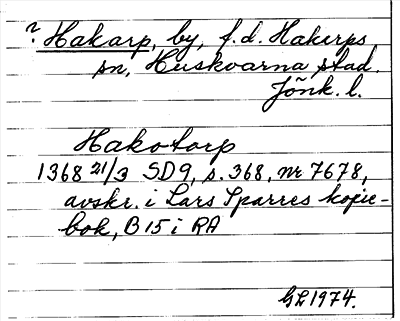 ? Hakarp, by, f.d. Hakarps
sn, Huskvarna stad.
Jönk. l.
Hakotorp
1368 21/3 SD9, s. 368, nr 7678,
avskr. i Lars Sparres kopie-
bok, B 15 i RA
GL 1974.